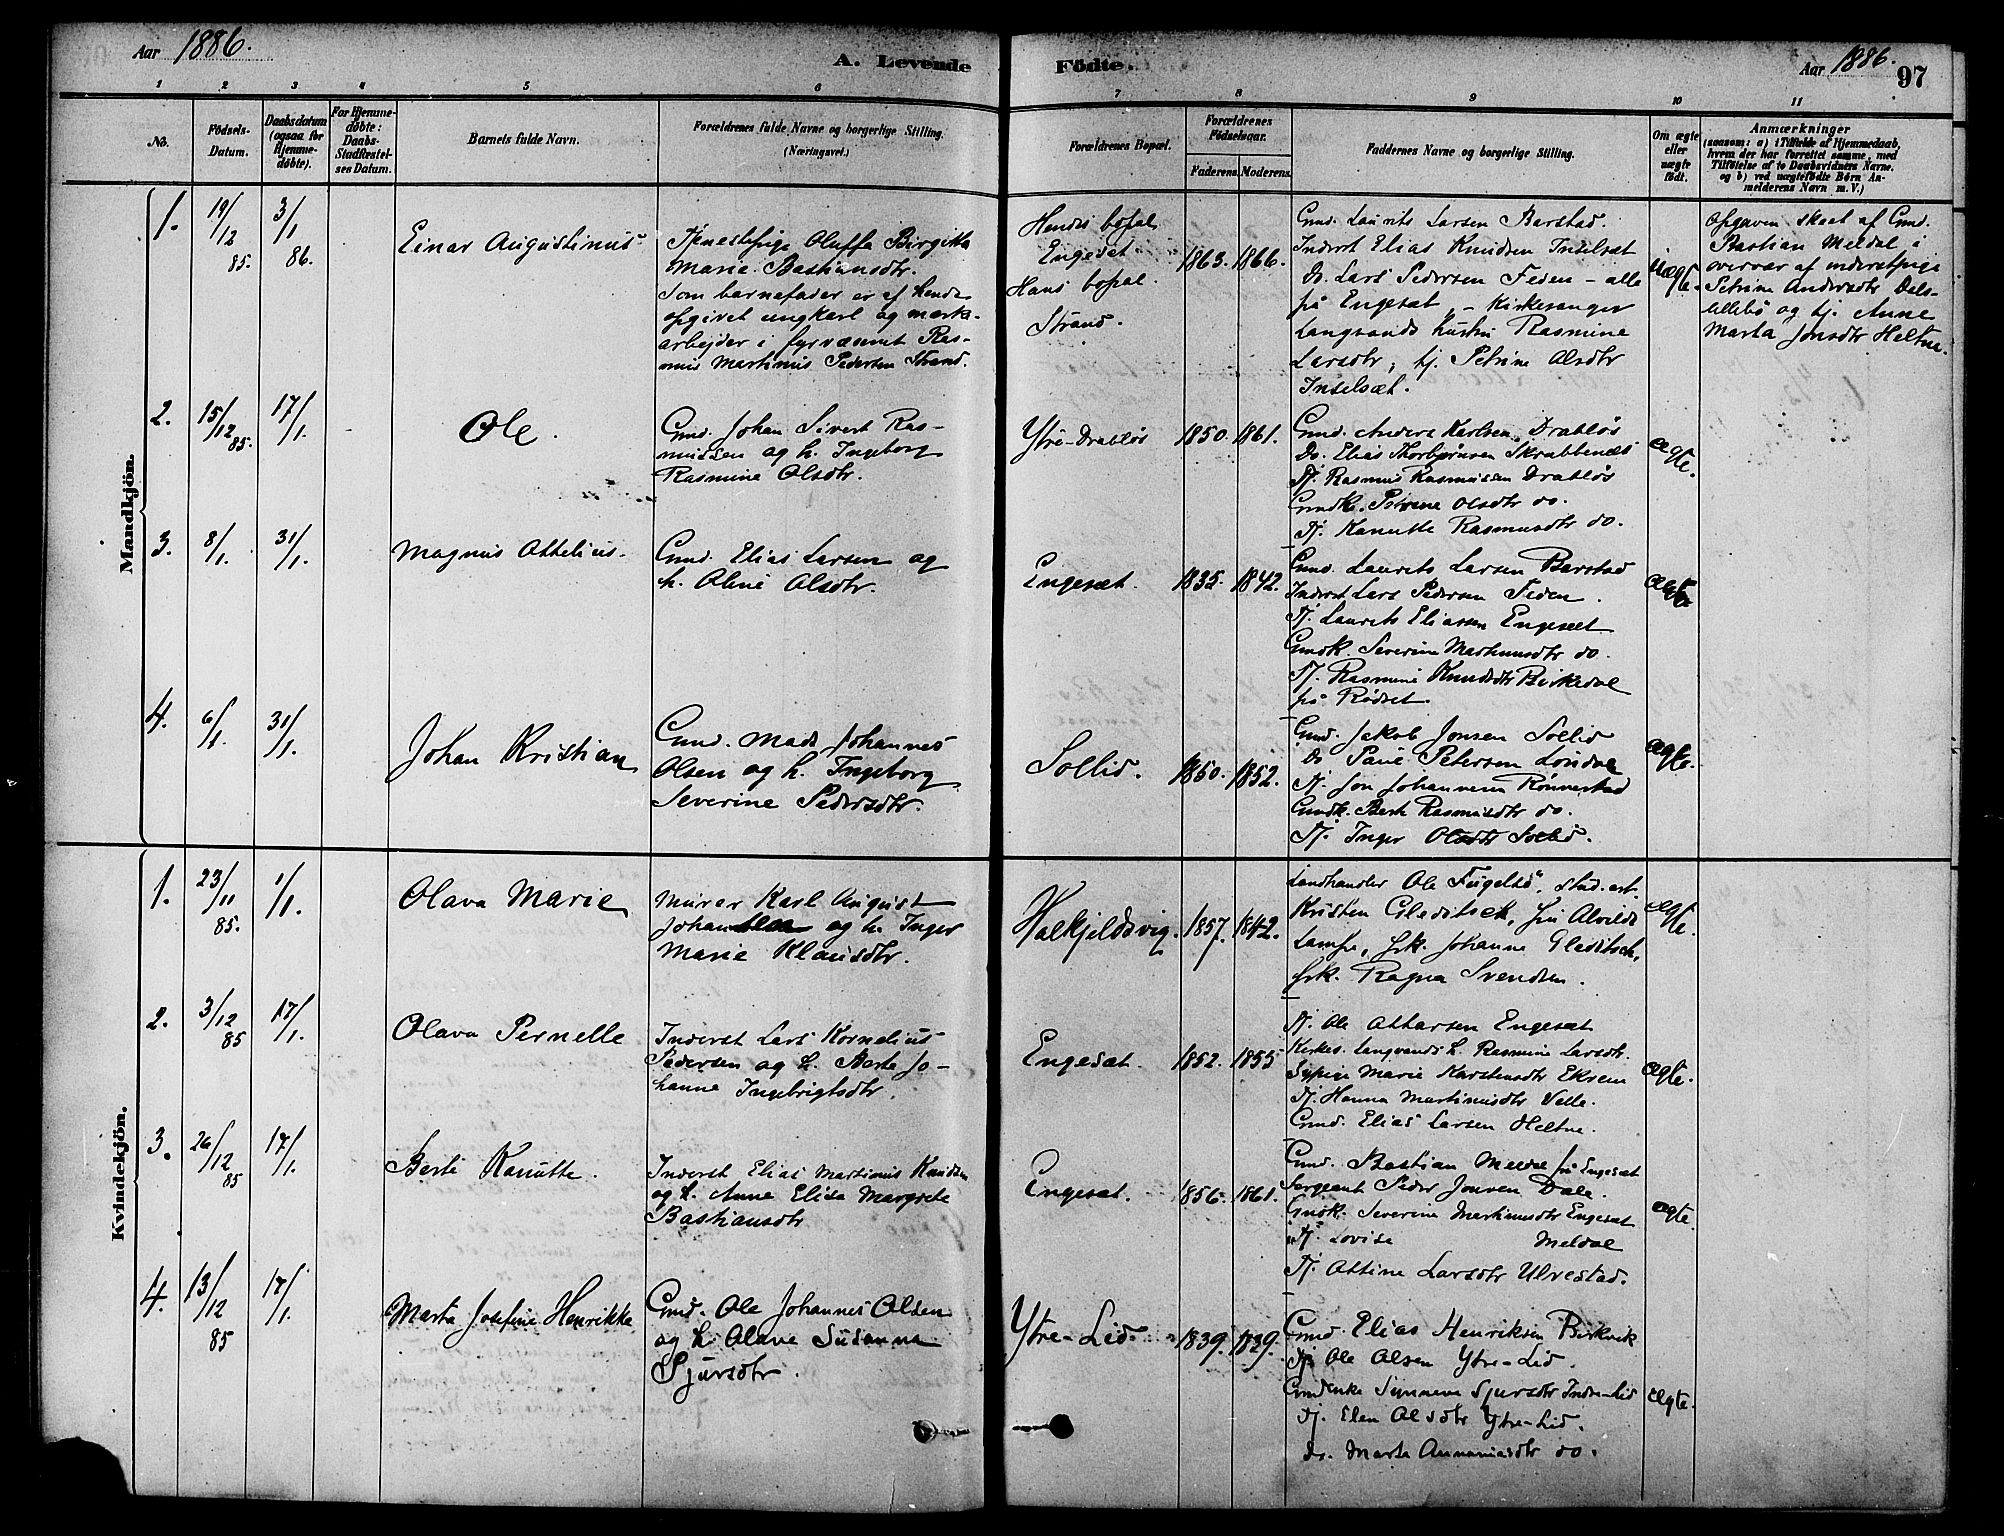 Aar 1886.
A. Levende
Födte.
Aar 1886.
97
1 2 3 4 5 6 7 8 9 10 11
No.
Födsels-
Datum.
Daabsdatum
(ogsaa for
Hjemme-
døbte).
For Hjemme-
døbte:
Daabs-
Stadfæstel-
ses Datum.
Barnets fulde Navn.
Forældrenes fulde Navne og borgerlige Stilling.
(Næringsvei.)
Forældrenes Bopæl.
Forældrenes
Födselsaar.
Faderens.
Moderens.
Faddernes Navne og borgerlige Stilling.
Om ægte
eller
uægte
födt.
Anmærkninger
(saasom: a) i Tilfælde af Hjemmedaab,
hvem der har forrettet samme, med
Tilföielse af to Daabsvidners Navne,
og b) ved uægtefödte Börn An-
melderens Navn m. V.)
Mandkjön.
1.
19/12 85.
3/1 86.
Einar Augustinus
Tjenestepige Oluffa Birgitta
Marie Bastiansdtr.
Som barnefader er af hende
opgivet ungkarl og mærke-
arbejder i fyrvæsenet Ras-
mus Martinus Pedersen Strand.
Hendes bopæl
Engesæt
Hans bopæl
Strand.
1863. 1866.
Gmd. Laurits Larsen Barstad.
Inderst Elias Knudsen Inselsæt
Do. Lars Pedersen Feden – alle
på Engesæt, – Kirkesanger
Langvands hustru Rasmine
Larsdtr, tj. Petrine Olsdtr
Inselsæt.
Uægte.
Opgaven skeet af Gmd.
Bastian Meldal i
overvær af inderstpige
Petrine Andersdtr Dals-
lillebö og tj. Anne
Marta Jonsdtr Heltne.
2.
15/12 85.
17/1.
Ole.
Gmd. Johan Sivert Ras-
mussen og h. Ingeborg
Rasmine Olsdtr.
Ytre-Drabløs
1850. 1861.
Gmd. Anders Karlsen, Drabløs
Do. Elias Thorbjørnsen Skrubbenæs
Tj. Rasmus Rasmussen Drabløs
Gmdk. Petrine Olsdtr do.
Tj. Kanutte Rasmusdtr do.
Ægte.
3.
8/1.
31/1.
Magnus Ottelius.
Gmd. Elias Larsen og
h. Oline Olsdtr.
Engesæt.
1835. 1842.
Gmd. Laurits Larsen Barstad
Inderst Lars Pedersen Feden.
Tj. Laurits Eliassen Engesæt
Gmdk. Severine Martinusdtr do.
Tj. Rasmine Knudsdtr Birkedal
på Rødset.
Ægte.
4.
6/1.
31/1.
Johan Kristian
Gmd. Mads Johannes
Olsen og h. Ingeborg
Severine Pedersdtr.
Sollid.
1850. 1852.
Gmd. Jakob Jonsen Sollid
Do Petersen Løndal
Tj. Jon Johannesen Rønnestad
Gmdk. Berte Rasmusdtr do.
Tj. Inger Olsdtr Sollid.
Ægte.
Kvindekjön.
1.
23/11 85.
1/1.
Olava Marie
Murer Karl August
Johansen og h. Inger
Marie Klausdtr.
Halkjeldsvig.
1857. 1842.
Landhandler Ole Fugelsö, stud. art.
Kristen Gleditsch, fru Alvilde
Lampe, frk. Johanne Gleditsch,
frk. Ragna Svendsen.
Ægte.
2.
3/12 85
17/1.
Olava Pernelle
Inderst Lars Kornelius
Pedersen og h. Berte Jo-
hanne Ingebrigtsdtr.
Engesæt.
1852. 1855
Tj. Ole Ottarsen Engesæt
Kirkes. Langvands h. Rasmine Larsdtr.
Sypige Marie Karstensdtr Ekrem
Tj. Hanna Martinusdtr Velle.
Gmd. Elias Larsen Heltne.
Ægte.
3.
26/12 85
17/1.
Berte Kanutte.
Inderst Elias Martinus Knudsen
og h. Anne Elisa Margrete
Bastiansdtr
Engesæt.
1856. 1861.
Gmd. Bastian Meldal på Engesæt
Sergeant Peder Jonsen Dale.
Gmdk. Severine Martinusdtr Engesæt
Tj. Lovise Meldal
Tj. Attine Larsdtr Ulvestad.
Ægte.
4.
13/12 85
17/1.
Marta Josefine Henrikke
Gmd. Ole Johannes Olsen
og h. Olave Susanna
Sjursdtr.
Ytre-Lid.
1839. 1839.
Gmd. Elias Henriksen Birkvik
Tj. Ole Olsen Ytre-Lid.
Gmdenke Synneve Sjursdtr Indre-Lid
Tj. Elen Olsdtr Ytre-Lid.
Do. Marte Annaniasdtr do.
Ægte.